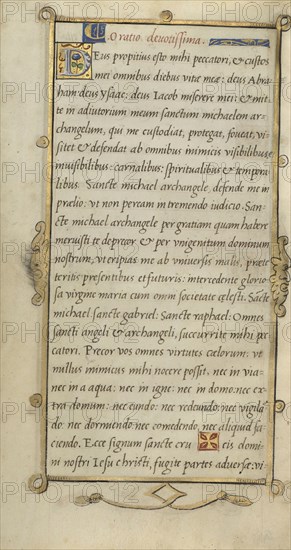 Oratio devotissima.
Deus propitius esto mihi peccatori, & custos
mei omnibus diebus vitæ meæ: deus Abra
ham: deus Ysaac: deus Iacob miserere mei: & mit
te in adiutorium meum sanctum michaelem ar
changelum, qui me custodiat, protegat, foveat, vi
sitet & defendat ab omnibus inimicis visibilibus &
invisibilibus: carnalibus: spiritualibus & tempora
libus. Sancte michael archangele defende me in
prælio: vt non peream in tremendo iudicio. San
cte michael archangele per gratiam quam habere
meruisti te deprecor & per vnigenitum dominum
nostrum, vt eripias me ab vniversis malis, præte
teritis presentibus et futuris: intercedente glorio
sa virgine maria cum omni societate cęlesti. Sācte
michael sancte gabriel: Sancte raphael: Omnes
sancti angeli & archangeli, succurrite mihi pec
catori. Precor vos omnes virtutes cælorum: vt
nullus inimicus mihi nocere possit. nec in via:
nec in aqua: nec in igne: nec in domo: nec ex
tra domum: nec eundo: nec redeundo: nec vigilā
do: nec dormiendo: nec comedendo, nec aliquid fa
ciendo. Ecce signum sanctę cru cis domi
ni nostri Iesu christi, fugite partes adversæ: vi